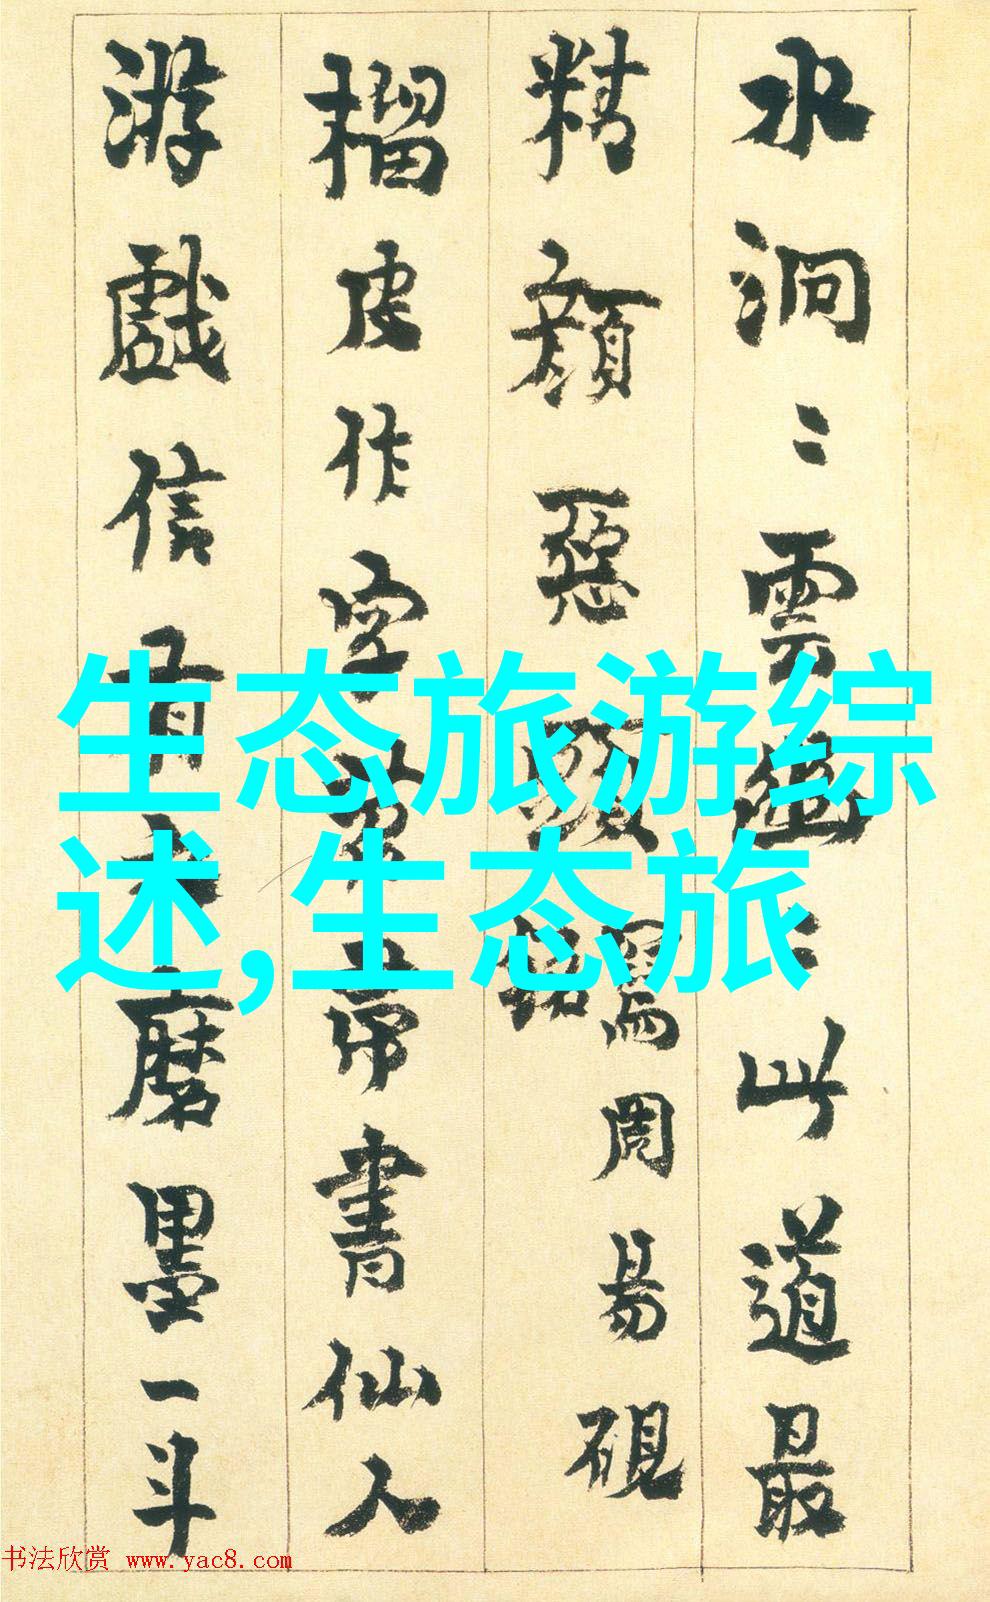 水洞〻雲〻此道最
精顏惡寫周易硯
榴皮作字苕帚書仙人
游戲信有磨墨一斗
生态旅游综
述,生态旅
书法欣赏 www.yac8.com